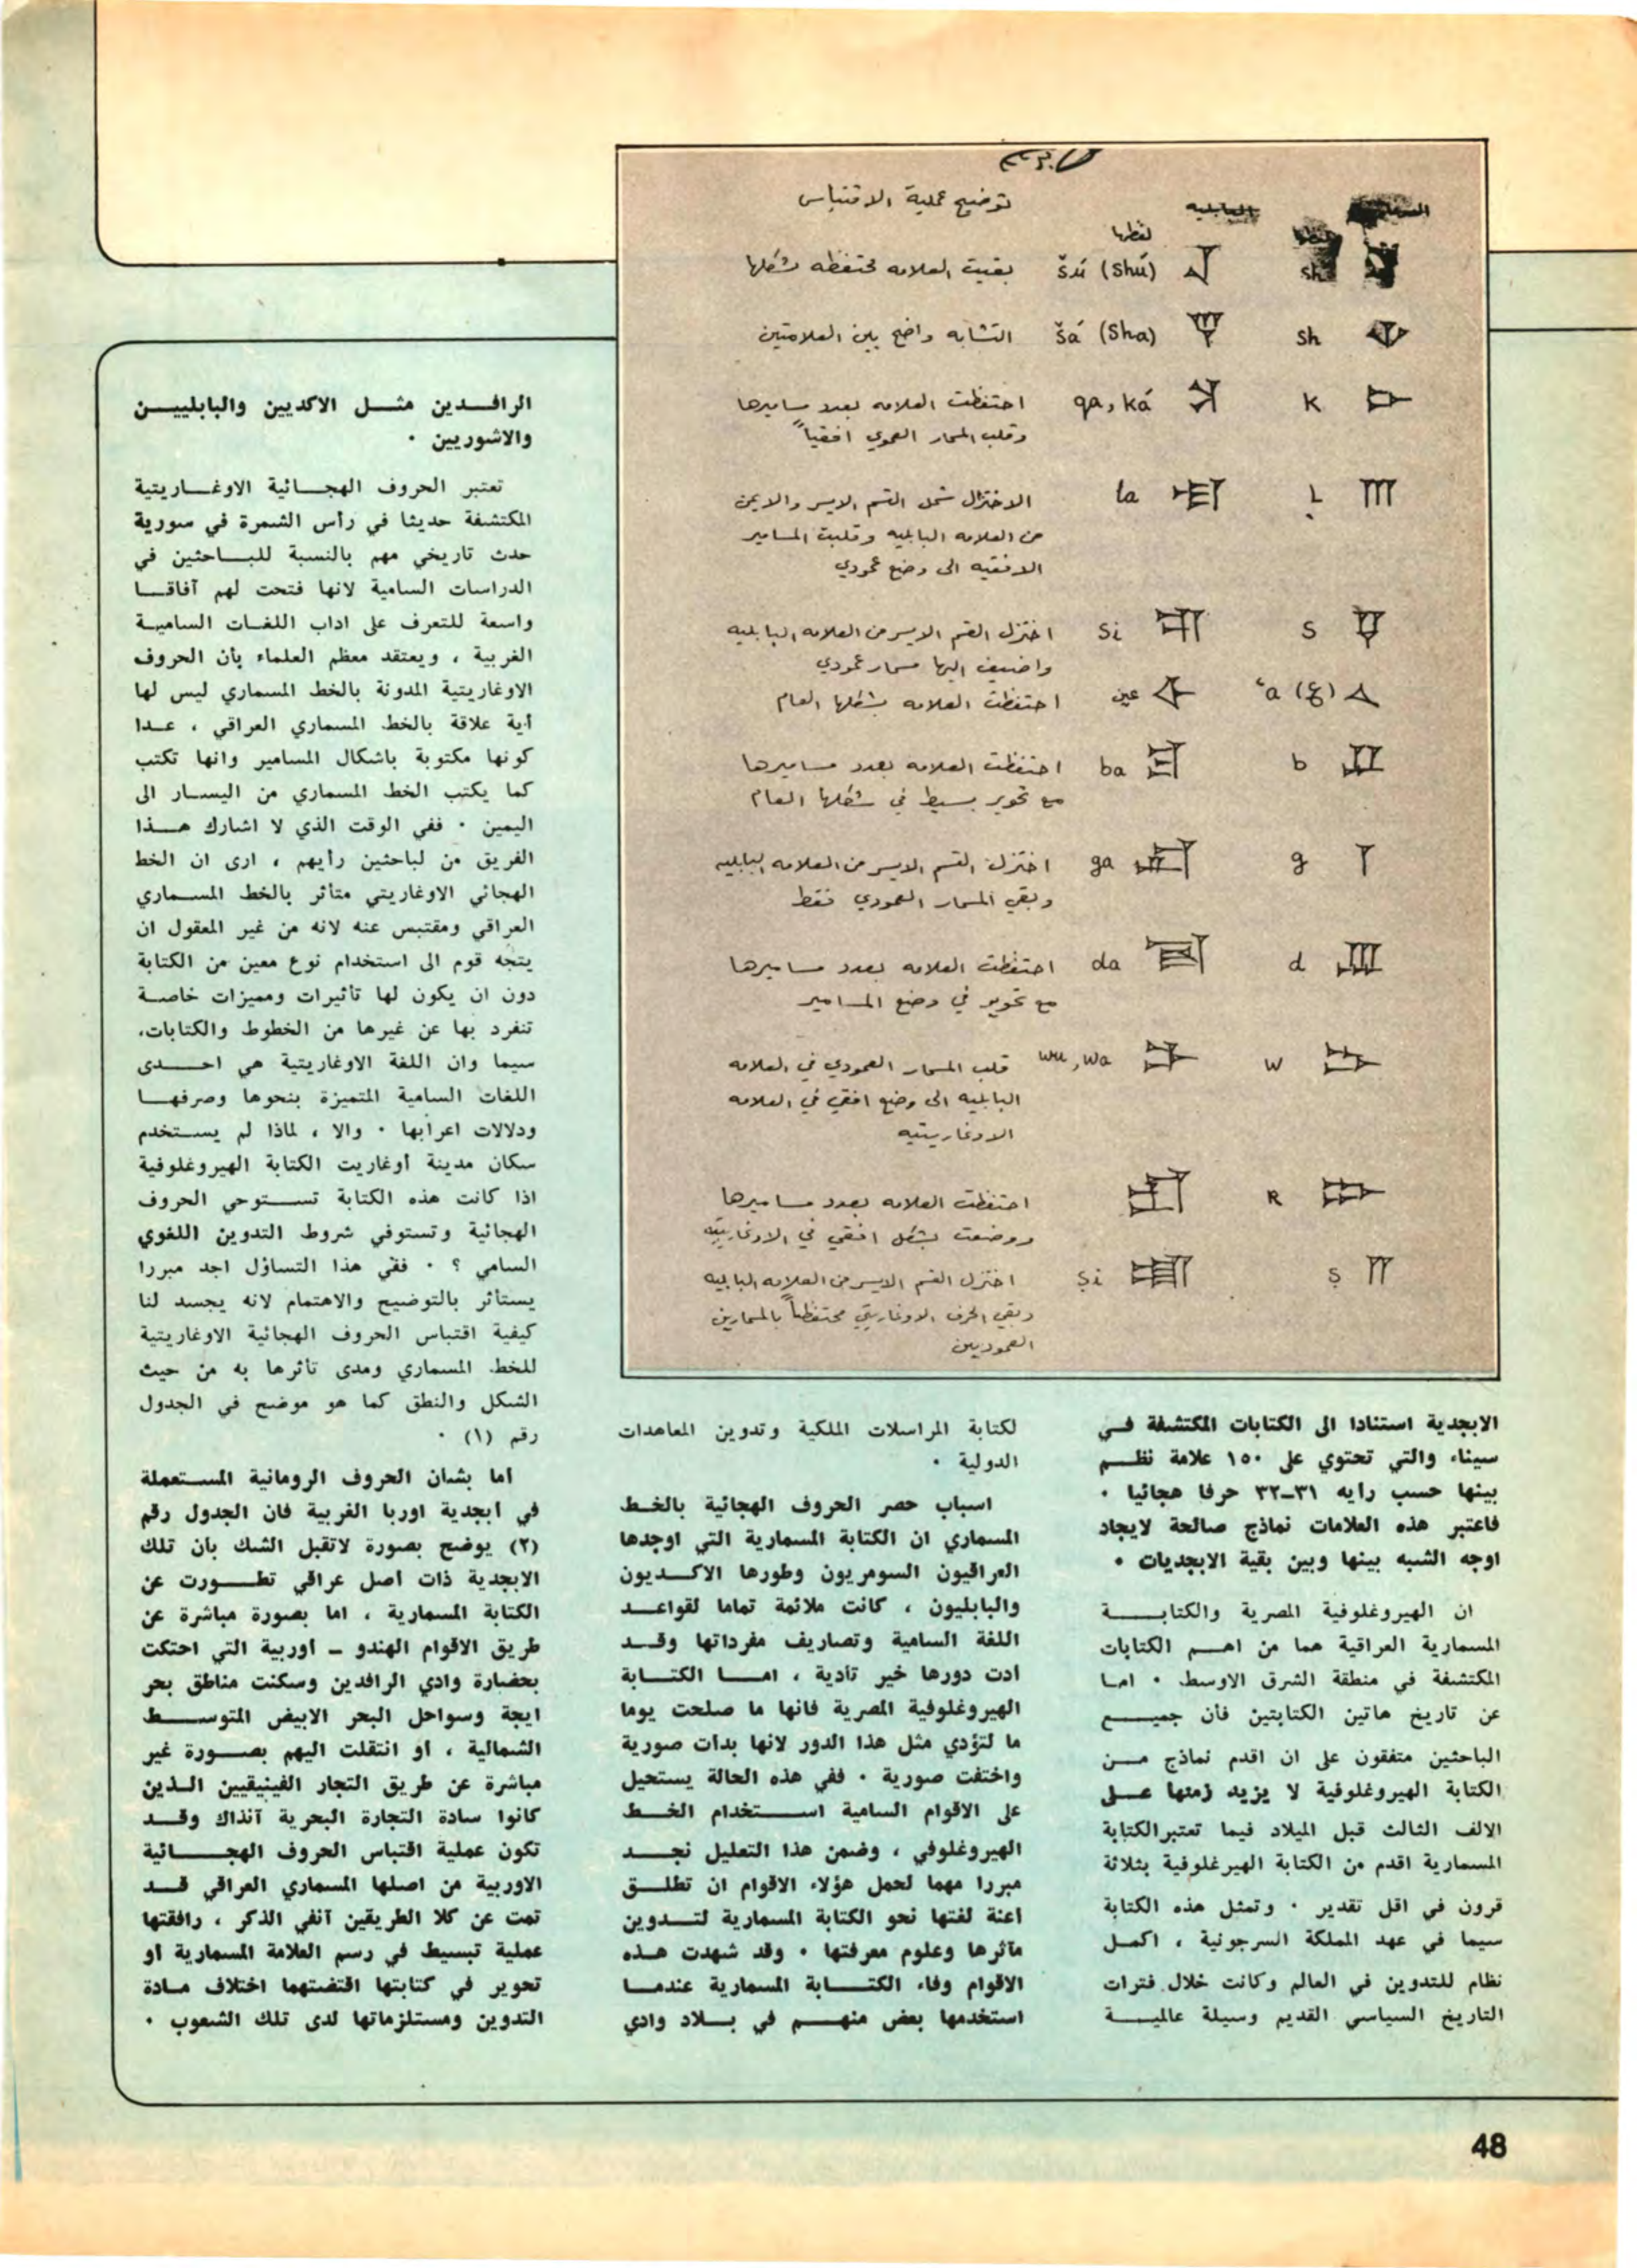 توضيح عملية الاقتباس
البابلية
لفظها
šú (shú) بقيت العلامه محتفظه بشكلها
sh šá (sha) التشابه واضح بين العلامتين
k qa, ká احتفظت العلامه بعدد مساميرها
وقلب المسمار العمودي افقياً
la الاختزال شمل القسم الايسر والايمن
من العلامه البابليه وقلبت المسامير
الافقيه الى وضع عمودي
s si اختزل القسم الايسر من العلامه البابليه
واضيف اليها مسمار عمودي
ʿa (ع) عين احتفظت العلامه بشكلها العام
b ba احتفظت العلامه بعدد مساميرها
مع تحوير بسيط في شكلها العام
g ga اختزل القسم الايسر من العلامه البابليه
وبقي المسمار العمودي فقط
d da احتفظت العلامه بعدد مساميرها
مع تحوير في وضع المسامير
w wu, wa قلب المسمار العمودي في العلامه
البابليه الى وضع افقي في العلامه
الاوغاريتيه
R احتفظت العلامه بعدد مساميرها
ووضعت بشكل افقي في الاوغاريتيه
ṣ ṣi اختزل القسم الايسر من العلامه البابليه
وبقي الحرف الاوغاريتي محتفظاً بالمسمارين
العموديين
الابجدية استنادا الى الكتابات المكتشفة فـي
سيناء والتي تحتوي على ١٥٠ علامة نظـــم
بينها حسب رأيه ٣١-٣٢ حرفا هجائيا ٠
فاعتبر هذه العلامات نماذج صالحة لايجاد
اوجه الشبه بينها وبين بقية الابجديات ٠
ان الهيروغلوفية المصرية والكتابــــــة
المسمارية العراقية هما من اهـــم الكتابات
المكتشفة في منطقة الشرق الاوسط ٠ امـا
عن تاريخ هاتين الكتابتين فأن جميـــــع
الباحثين متفقون على ان اقدم نماذج مـــن
الكتابة الهيروغلوفية لا يزيد زمنها عــلى
الالف الثالث قبل الميلاد فيما تعتبرالكتابة
المسمارية اقدم من الكتابة الهيرغلوفية بثلاثة
قرون في اقل تقدير ٠ وتمثل هذه الكتابة
سيما في عهد المملكة السرجونية ، اكمـل
نظام للتدوين في العالم وكانت خلال فترات
التاريخ السياسي القديم وسيلة عالميـــــة
لكتابة المراسلات الملكية وتدوين المعاهدات
الدولية ٠
اسباب حصر الحروف الهجائية بالخـط
المسماري ان الكتابة المسمارية التي اوجدها
العراقيون السومريون وطورها الاكــديون
والبابليون ، كانت ملائمة تماما لقواعـــد
اللغة السامية وتصاريف مفرداتها وقــد
ادت دورها خير تأدية ، امـــا الكتـــابة
الهيروغلوفية المصرية فانها ما صلحت يوما
ما لتؤدي مثل هذا الدور لانها بدأت صورية
واختفت صورية ٠ ففي هذه الحالة يستحيل
على الاقوام السامية اســـــتخدام الخـــط
الهيروغلوفي ، وضمن هذا التعليل نجـــد
مبررا مهما لحمل هؤلاء الاقوام ان تطلـــق
اعنة لغتها نحو الكتابة المسمارية لتــدوين
مآثرها وعلوم معرفتها ٠ وقد شهدت هــذه
الاقوام وفاء الكتـــــابة المسمارية عندمــا
استخدمها بعض منهـــم في بـــلاد وادي
الرافــدين مثـــل الاكديين والبابلييـــن
والاشوريين ٠
تعتبر الحروف الهجـــائية الاوغـــاريتية
المكتشفة حديثا في رأس الشمرة في سورية
حدث تاريخي مهم بالنسبة للبـــاحثين في
الدراسات السامية لانها فتحت لهم آفاقـــا
واسعة للتعرف على اداب اللغـات الساميـة
الغربية ، ويعتقد معظم العلماء بأن الحروف
الاوغاريتية المدونة بالخط المسماري ليس لها
أية علاقة بالخط المسماري العراقي ، عــدا
كونها مكتوبة باشكال المسامير وانها تكتب
كما يكتب الخط المسماري من اليســار الى
اليمين ٠ ففي الوقت الذي لا اشارك هـــذا
الفريق من لباحثين رأيهم ، ارى ان الخط
الهجائي الاوغاريتي متأثر بالخط المســماري
العراقي ومقتبس عنه لانه من غير المعقول ان
يتجه قوم الى استخدام نوع معين من الكتابة
دون ان يكون لها تأثيرات ومميزات خاصـة
تنفرد بها عن غيرها من الخطوط والكتابات،
سيما وان اللغة الاوغاريتية هي احـــــدى
اللغات السامية المتميزة بنحوها وصرفهــا
ودلالات اعرابها ٠ والا ، لماذا لم يســتخدم
سكان مدينة أوغاريت الكتابة الهيروغلوفية
اذا كانت هذه الكتابة تســـتوحي الحروف
الهجائية وتستوفي شروط التدوين اللغوي
السامي ؟ ٠ ففي هذا التساؤل اجد مبررا
يستأثر بالتوضيح والاهتمام لانه يجسد لنا
كيفية اقتباس الحروف الهجائية الاوغاريتية
للخط المسماري ومدى تأثرها به من حيث
الشكل والنطق كما هو موضح في الجدول
رقم (١) ٠
اما بشأن الحروف الرومانية المســتعملة
في أبجدية اوربا الغربية فان الجدول رقم
(٢) يوضح بصورة لاتقبل الشك بأن تلك
الابجدية ذات اصل عراقي تطـــورت عن
الكتابة المسمارية ، اما بصورة مباشرة عن
طريق الاقوام الهندو - أوربية التي احتكت
بحضارة وادي الرافدين وسكنت مناطق بحر
ايجة وسواحل البحر الابيض المتوســـط
الشمالية ، او انتقلت اليهم بصـــورة غير
مباشرة عن طريق التجار الفينيقيين الـذين
كانوا سادة التجارة البحرية آنذاك وقــد
تكون عملية اقتباس الحروف الهجـــــائية
الاوربية من اصلها المسماري العراقي قــد
تمت عن كلا الطريقين آنفي الذكر ، رافقتها
عملية تبسيط في رسم العلامة المسمارية او
تحوير في كتابتها اقتضتهما اختلاف مــادة
التدوين ومستلزماتها لدى تلك الشعوب ٠
48